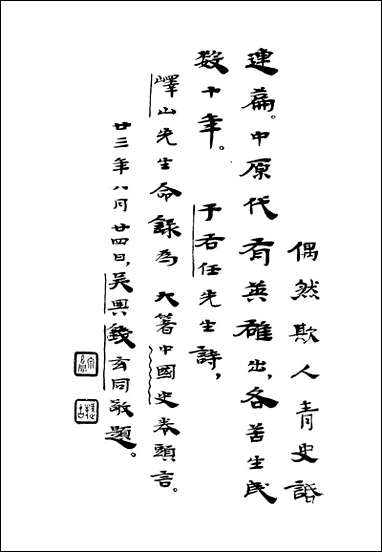 偶然欺人青史話
連篇。中原代有英雄出,各苦生民
數十年。 于右任先生詩,
嶧山先生命錄為大著中國史卷頭言。
廿三年八月廿四日,吳興錢玄同敬題。